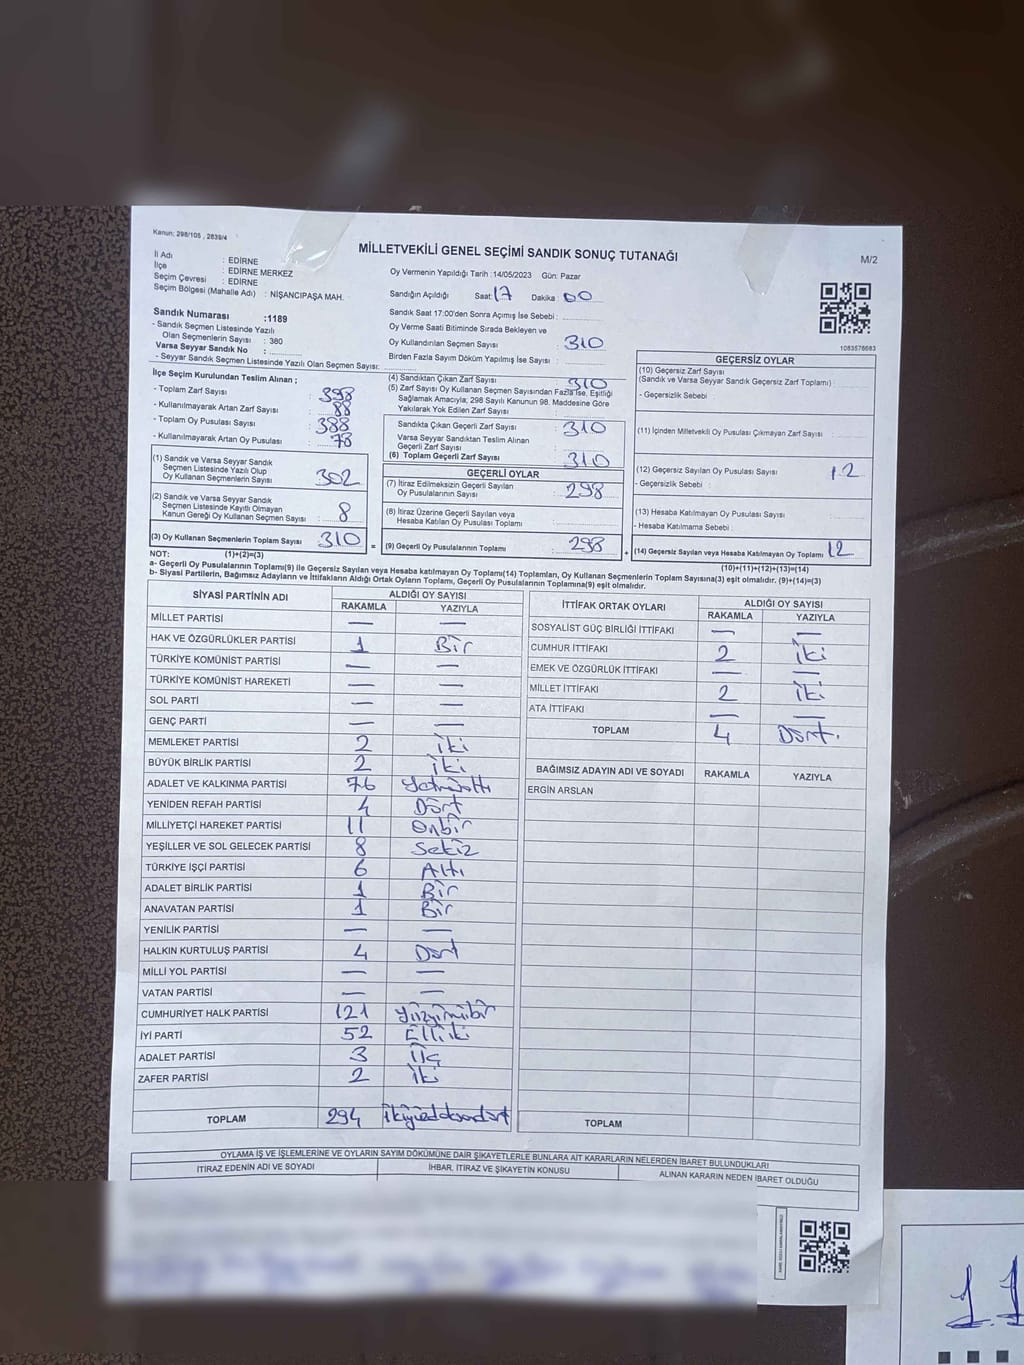 Kanun: 298/105 , 2839/4
MİLLETVEKİLİ GENEL SEÇİMİ SANDIK SONUÇ TUTANAĞI
M/2
İl Adı : EDİRNE
İlçe : EDİRNE MERKEZ
Seçim Çevresi : EDİRNE
Seçim Bölgesi (Mahalle Adı) : NİŞANCIPAŞA MAH.
Oy Vermenin Yapıldığı Tarih :14/05/2023 Gün: Pazar
Sandığın Açıldığı Saat: 17 Dakika: 00
Sandık Saat 17:00'den Sonra Açımış İse Sebebi :
Oy Verme Saati Bitiminde Sırada Bekleyen ve
Oy Kullandırılan Seçmen Sayısı : 310
Birden Fazla Sayım Döküm Yapılmış İse Sayısı :
Sandık Numarası :1189
- Sandık Seçmen Listesinde Yazılı
Olan Seçmenlerin Sayısı : 380
Varsa Seyyar Sandık No :
- Seyyar Sandık Seçmen Listesinde Yazılı Olan Seçmen Sayısı:
1083576683
İlçe Seçim Kurulundan Teslim Alınan ;
- Toplam Zarf Sayısı : 398
- Kullanılmayarak Artan Zarf Sayısı : 88
- Toplam Oy Pusulası Sayısı : 388
- Kullanılmayarak Artan Oy Pusulası : 78
(1) Sandık ve Varsa Seyyar Sandık
Seçmen Listesinde Yazılı Olup
Oy Kullanan Seçmenlerin Sayısı : 302
(2) Sandık ve Varsa Seyyar Sandık
Seçmen Listesinde Kayıtlı Olmayan
Kanun Gereği Oy Kullanan Seçmen Sayısı : 8
(3) Oy Kullanan Seçmenlerin Toplam Sayısı : 310
(4) Sandıktan Çıkan Zarf Sayısı : 310
(5) Zarf Sayısı Oy Kullanan Seçmen Sayısından Fazla İse, Eşitliği
Sağlamak Amacıyla, 298 Sayılı Kanunun 98. Maddesine Göre
Yakılarak Yok Edilen Zarf Sayısı :
Sandıkta Çıkan Geçerli Zarf Sayısı : 310
Varsa Seyyar Sandıktan Teslim Alınan
Geçerli Zarf Sayısı :
(6) Toplam Geçerli Zarf Sayısı : 310
GEÇERLİ OYLAR
(7) İtiraz Edilmeksizin Geçerli Sayılan
Oy Pusulalarının Sayısı : 298
(8) İtiraz Üzerine Geçerli Sayılan veya
Hesaba Katılan Oy Pusulası Toplamı :
= (9) Geçerli Oy Pusulalarının Toplamı : 298 +
GEÇERSİZ OYLAR
(10) Geçersiz Zarf Sayısı
(Sandık ve Varsa Seyyar Sandık Geçersiz Zarf Toplamı) :
- Geçersizlik Sebebi :
(11) İçinden Milletvekili Oy Pusulası Çıkmayan Zarf Sayısı :
(12) Geçersiz Sayılan Oy Pusulası Sayısı : 12
- Geçersizlik Sebebi :
(13) Hesaba Katılmayan Oy Pusulası Sayısı :
- Hesaba Katılmama Sebebi :
(14) Geçersiz Sayılan veya Hesaba Katılmayan Oy Toplamı : 12
NOT: (1)+(2)=(3) (10)+(11)+(12)+(13)=(14)
a- Geçerli Oy Pusulalarının Toplamı(9) ile Geçersiz Sayılan veya Hesaba katılmayan Oy Toplamı(14) Toplamları, Oy Kullanan Seçmenlerin Toplam Sayısına(3) eşit olmalıdır. (9)+(14)=(3)
b- Siyasi Partilerin, Bağımsız Adayların ve İttifakların Aldığı Ortak Oyların Toplamı, Geçerli Oy Pusulalarının Toplamına(9) eşit olmalıdır.
SİYASİ PARTİNİN ADI ALDIĞI OY SAYISI
RAKAMLA YAZIYLA
MİLLET PARTİSİ — —
HAK VE ÖZGÜRLÜKLER PARTİSİ 1 Bir
TÜRKİYE KOMÜNİST PARTİSİ — —
TÜRKİYE KOMÜNİST HAREKETİ — —
SOL PARTİ — —
GENÇ PARTİ — —
MEMLEKET PARTİSİ 2 iki
BÜYÜK BİRLİK PARTİSİ 2 iki
ADALET VE KALKINMA PARTİSİ 76
YENİDEN REFAH PARTİSİ 4 Dört
MİLLİYETÇİ HAREKET PARTİSİ 11 Onbir
YEŞİLLER VE SOL GELECEK PARTİSİ 8 Sekiz
TÜRKİYE İŞÇİ PARTİSİ 6 Altı
ADALET BİRLİK PARTİSİ 1 Bir
ANAVATAN PARTİSİ 1 Bir
YENİLİK PARTİSİ — —
HALKIN KURTULUŞ PARTİSİ 4 Dört
MİLLİ YOL PARTİSİ — —
VATAN PARTİSİ — —
CUMHURİYET HALK PARTİSİ 121 Yüzyirmibir
İYİ PARTİ 52 Elliiki
ADALET PARTİSİ 3 Üç
ZAFER PARTİSİ 2 iki
TOPLAM 294 ikiyüzdoksandört
İTTİFAK ORTAK OYLARI ALDIĞI OY SAYISI
RAKAMLA YAZIYLA
SOSYALİST GÜÇ BİRLİĞİ İTTİFAKI — —
CUMHUR İTTİFAKI 2 iki
EMEK VE ÖZGÜRLÜK İTTİFAKI — —
MİLLET İTTİFAKI 2 iki
ATA İTTİFAKI — —
TOPLAM 4 Dört.
BAĞIMSIZ ADAYIN ADI VE SOYADI RAKAMLA YAZIYLA
ERGİN ARSLAN
TOPLAM
OYLAMA İŞ VE İŞLEMLERİNE VE OYLARIN SAYIM DÖKÜMÜNE DAİR ŞİKAYETLERLE BUNLARA AİT KARARLARIN NELERDEN İBARET BULUNDUKLARI
İTİRAZ EDENİN ADI VE SOYADI İHBAR, İTİRAZ VE ŞİKAYETİN KONUSU ALINAN KARARIN NEDEN İBARET OLDUĞU